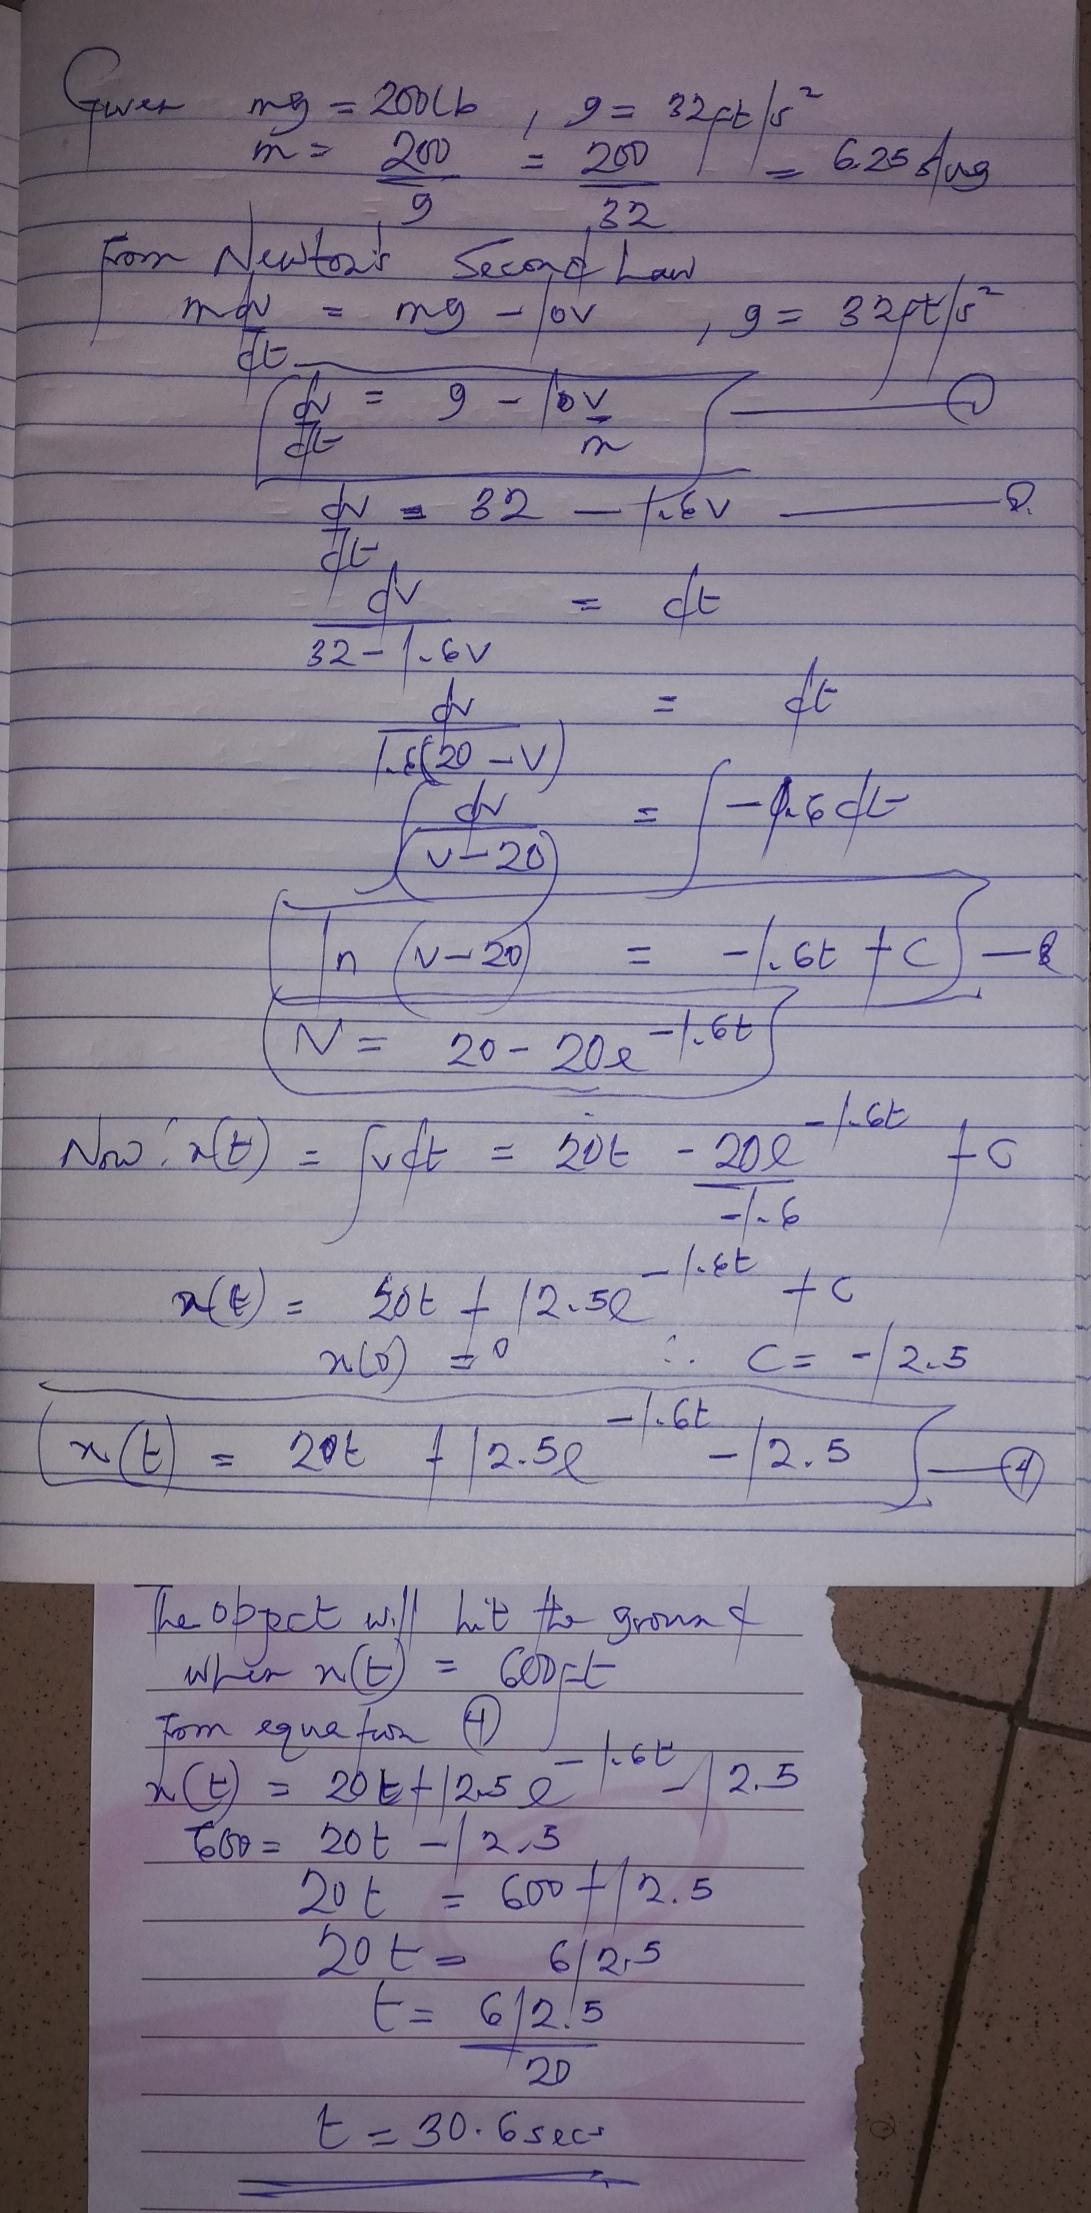 Given mg = 200lb , g = 32ft/s²
m = 200/g = 200/32 = 6.25 slug
From Newton's Second Law
m dv/dt = mg - 10v , g = 32ft/s²
dv/dt = g - 10v/m — 1
dv/dt = 32 - 1.6v — 2.
dv/(32 - 1.6v) = dt
dv/(1.6(20 - v)) = dt
∫ dv/(v - 20) = ∫ -1.6dt
ln (v - 20) = -1.6t + C —
V = 20 - 20e^(-1.6t)
Now: x(t) = ∫vdt = 20t - 20e^(-1.6t)/-1.6 + C
x(t) = 20t + 12.5e^(-1.6t) + C
x(0) = 0 ∴ C = -12.5
x(t) = 20t + 12.5e^(-1.6t) - 12.5 — 4
The object will hit the ground
when x(t) = 600ft
From equation 4
x(t) = 20t + 12.5e^(-1.6t) - 12.5
600 = 20t - 12.5
20t = 600 + 12.5
20t = 612.5
t = 612.5/20
t = 30.6secs